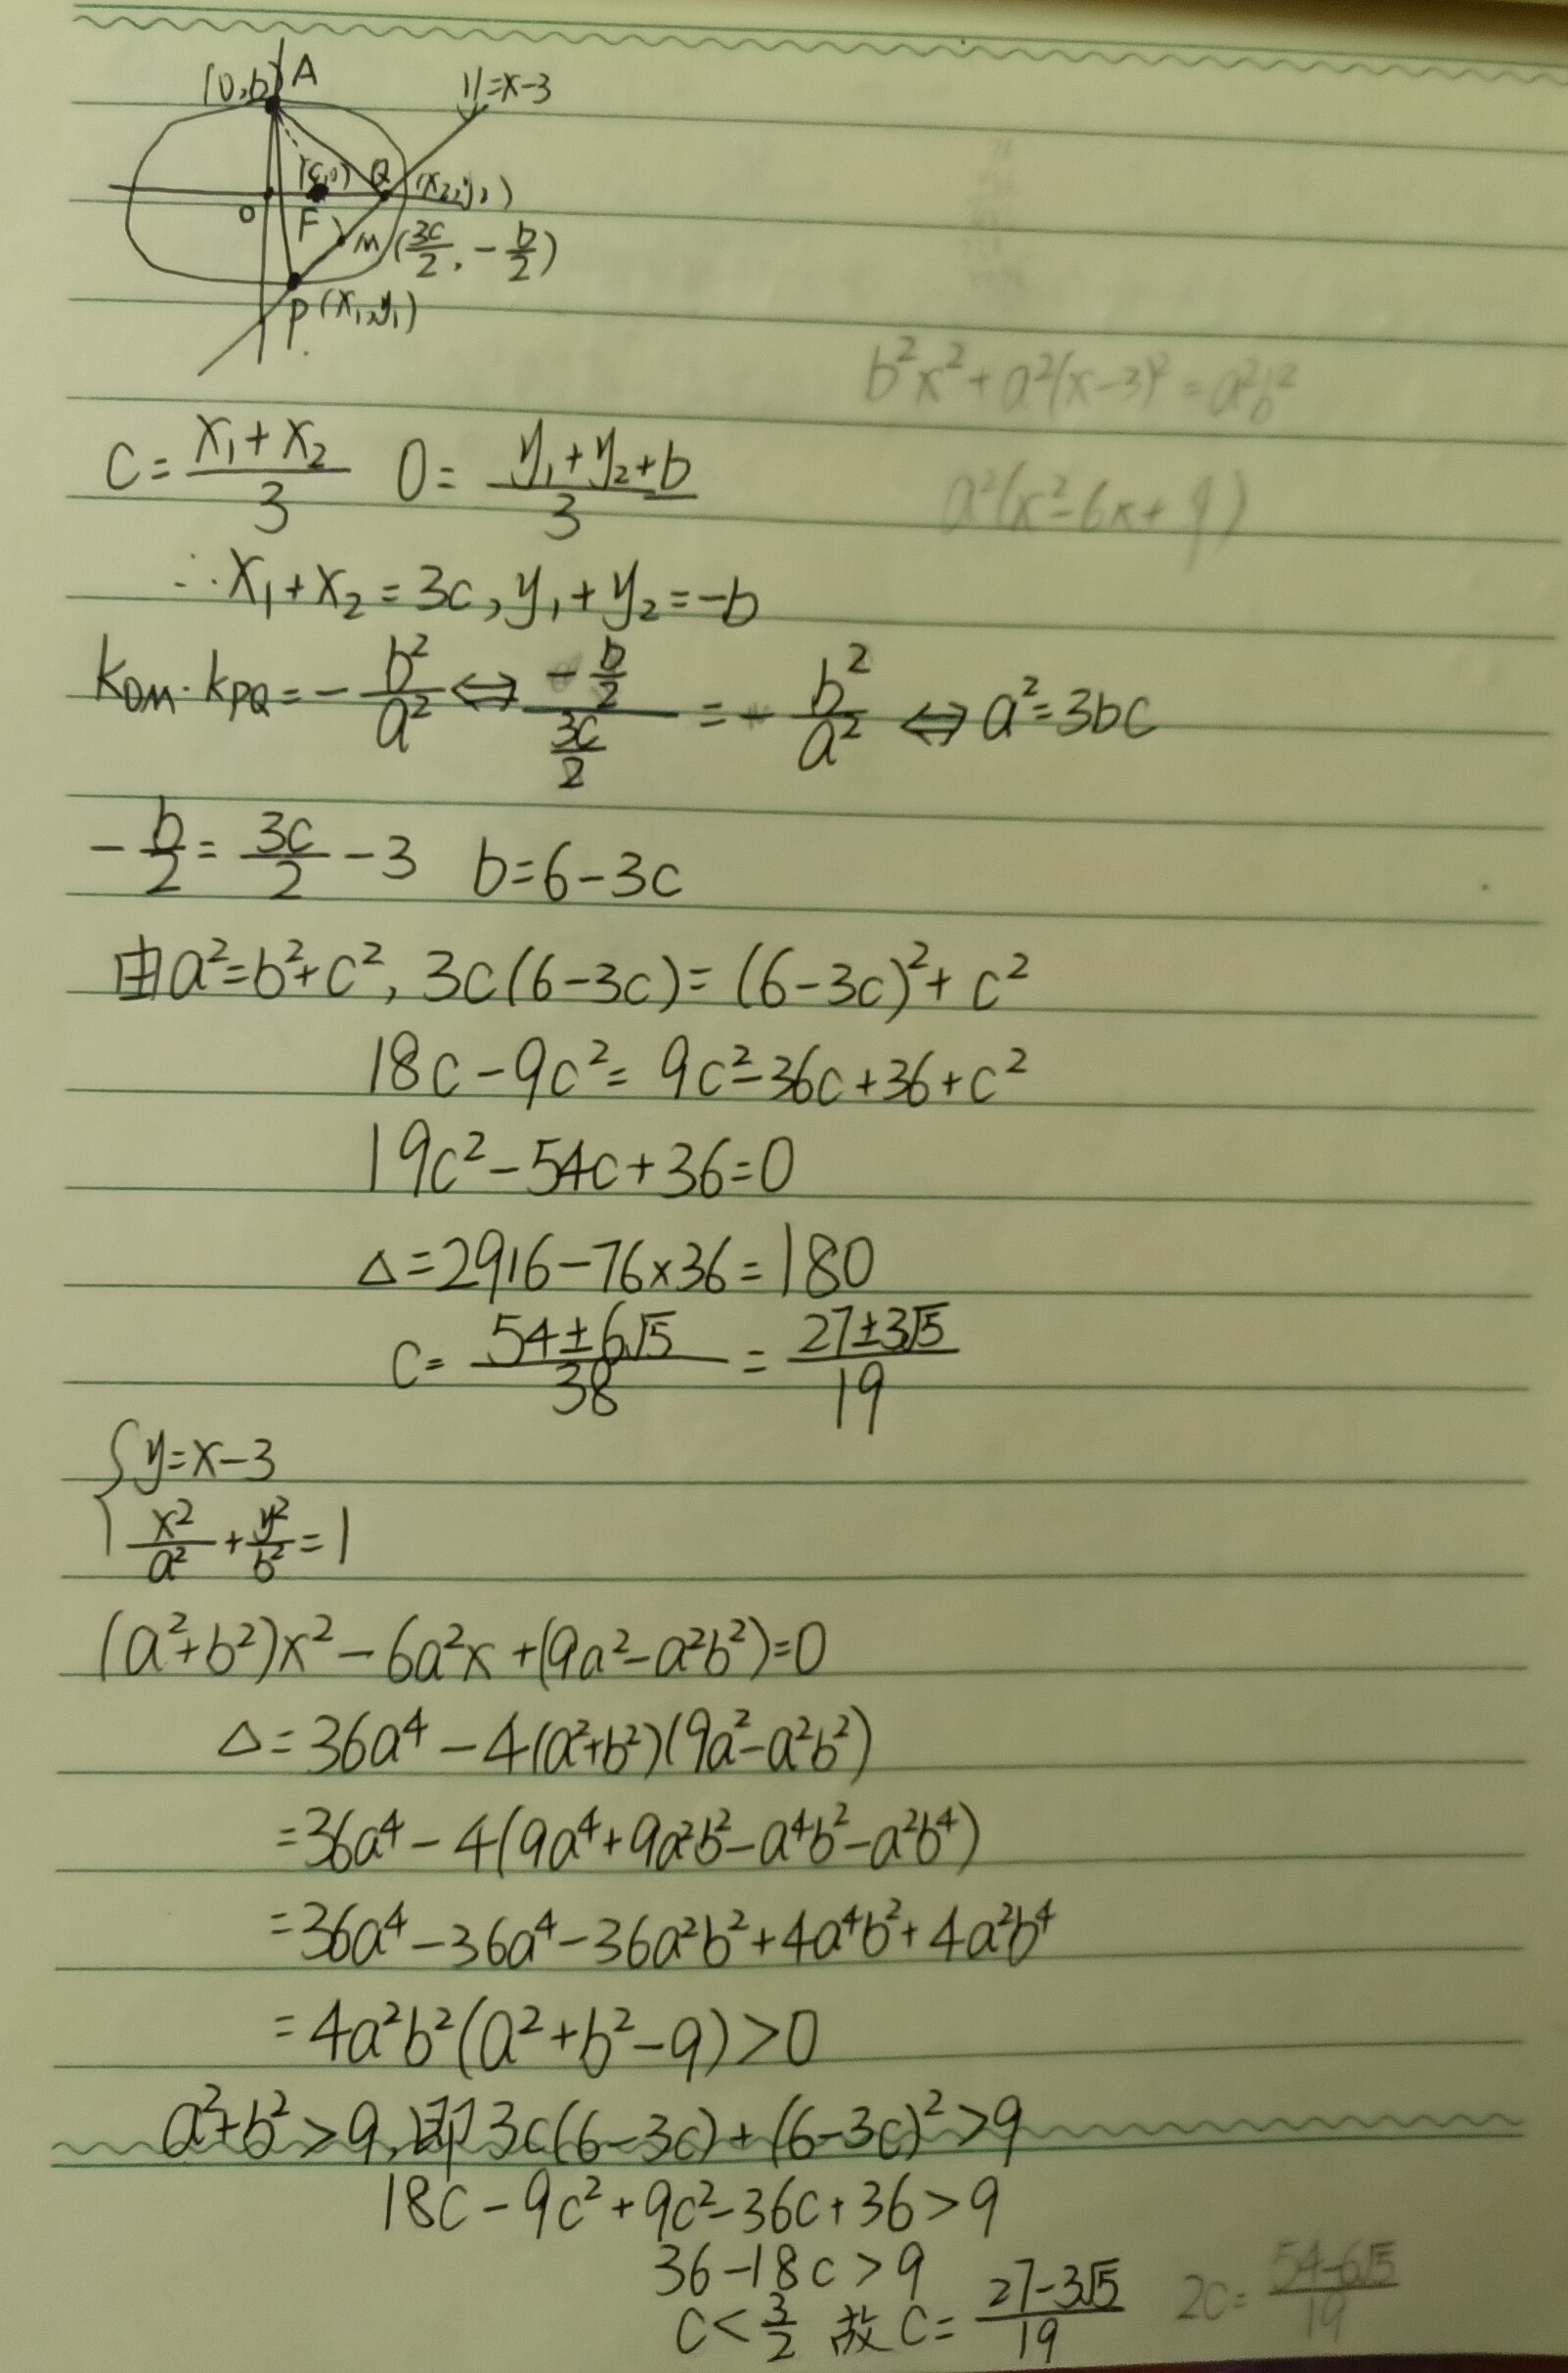 (0,b) A y=x-3
(c,0) Q (x₂,y₂)
O F M (3c/2, -b/2)
P(x₁,y₁)
b²x²+a²(x-3)²=a²b²
c=(x₁+x₂)/3 0=(y₁+y₂+b)/3
a²(x²-6x+9)
∴x₁+x₂=3c,y₁+y₂=-b
k_OM·k_PQ=-b²/a²⇔(-b/2)/(3c/2)=-b²/a²⇔a²=3bc
-b/2=3c/2-3 b=6-3c
由a²=b²+c²,3c(6-3c)=(6-3c)²+c²
18c-9c²=9c²-36c+36+c²
19c²-54c+36=0
Δ=2916-76×36=180
c=(54±6√5)/38=(27±3√5)/19
{y=x-3
x²/a²+y²/b²=1
(a²+b²)x²-6a²x+(9a²-a²b²)=0
Δ=36a⁴-4(a²+b²)(9a²-a²b²)
=36a⁴-4(9a⁴+9a²b²-a⁴b²-a²b⁴)
=36a⁴-36a⁴-36a²b²+4a⁴b²+4a²b⁴
=4a²b²(a²+b²-9)>0
a²+b²>9,即3c(6-3c)+(6-3c)²>9
18c-9c²+9c²-36c+36>9
36-18c>9
c<3/2 故c=(27-3√5)/19 2c=(54-6√5)/19